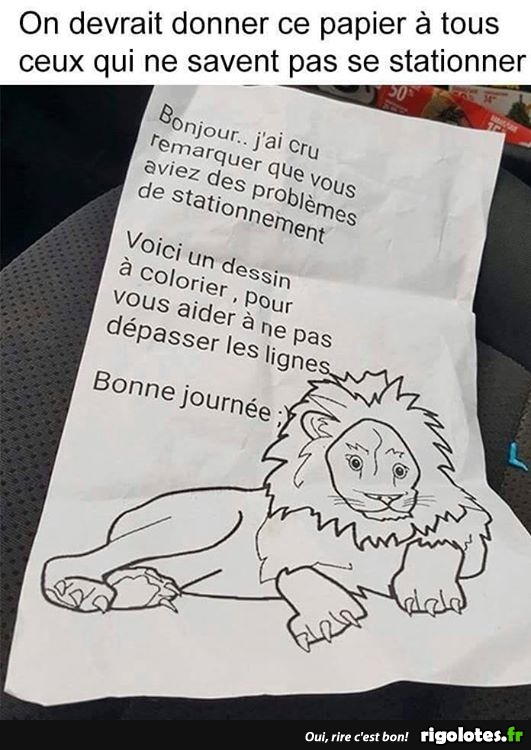 On devrait donner ce papier à tous
ceux qui ne savent pas se stationner
50%
Bonjour.. j'ai cru
remarquer que vous
aviez des problèmes
de stationnement
Voici un dessin
à colorier , pour
vous aider à ne pas
dépasser les lignes
Bonne journée ;)
Oui, rire c'est bon! rigolotes.fr